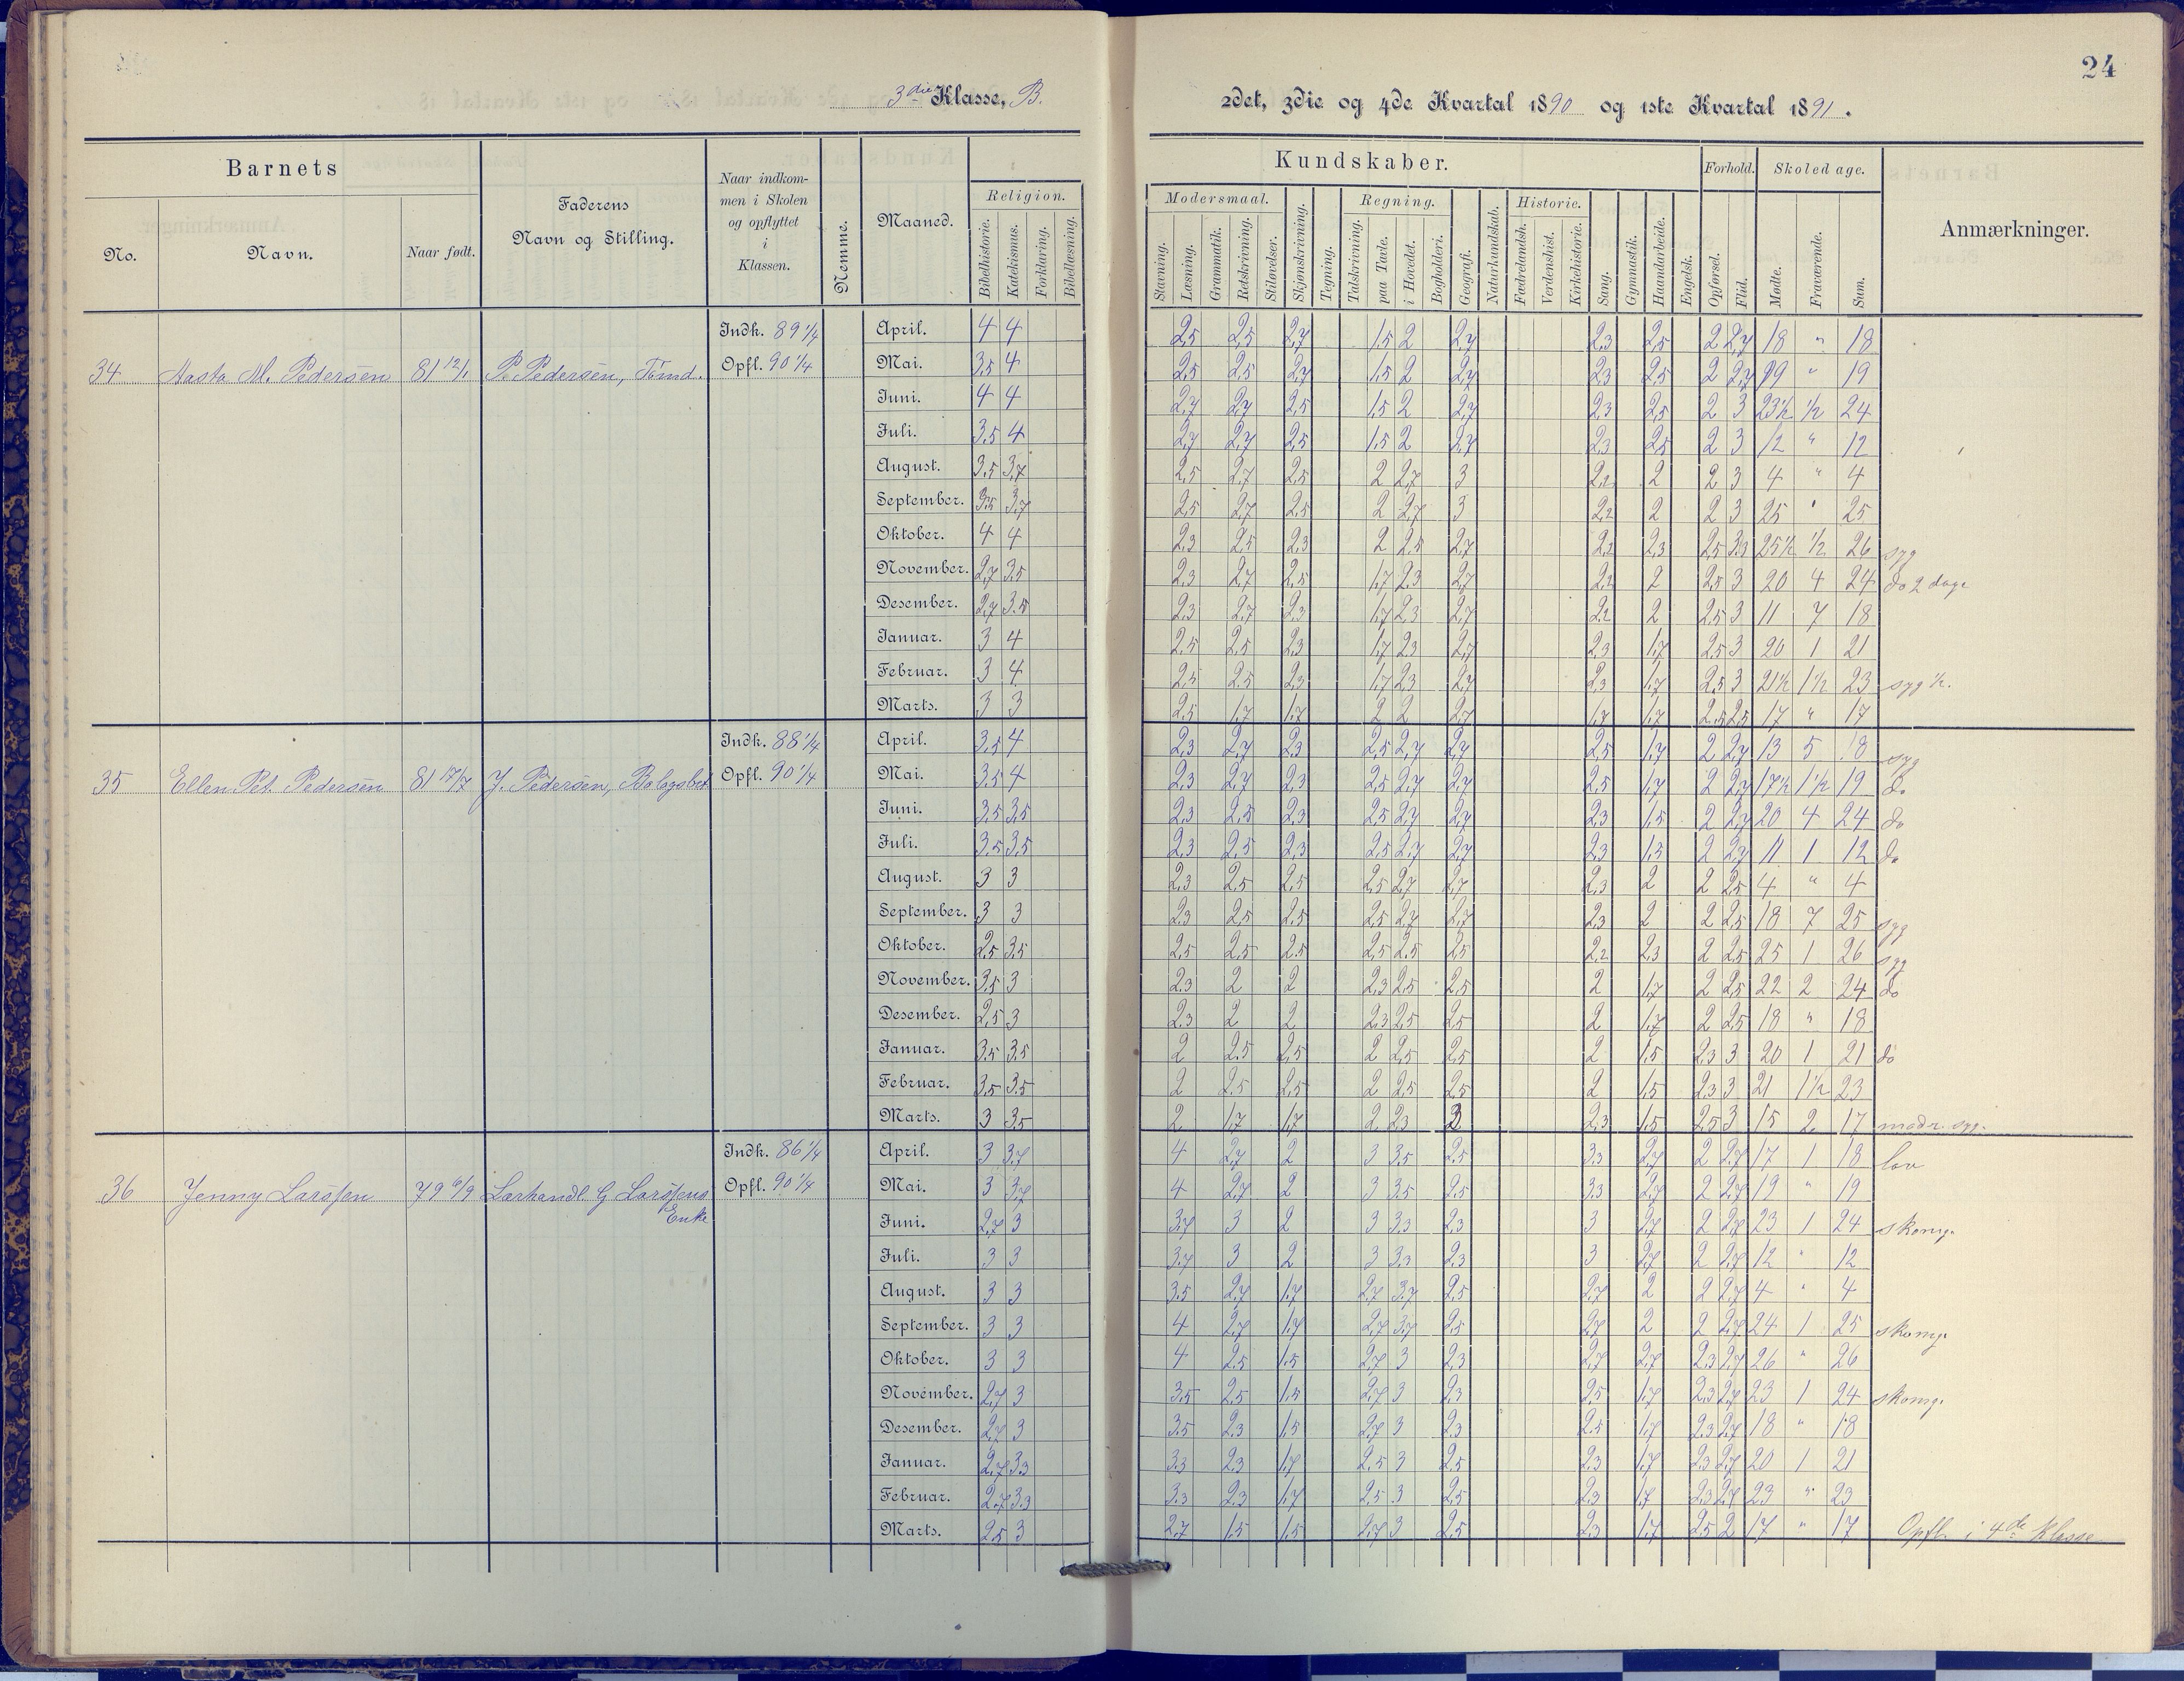 24
3die Klasse, B.
2det, 3die og 4de Kvartal 1890 og 1ste Kvartal 1891.
Barnets
No.
Navn.
Naar født.
Faderens
Navn og Stilling.
Naar indkom-
men i Skolen
og opflyttet
i
Klassen.
Nemme.
Maaned.
Religion.
Bibelhistorie.
Katekismus.
Forklaring.
Bibellæsning.
Kundskaber.
Modersmaal.
Stavning.
Læsning.
Grammatik.
Retskrivning.
Stiløvelser.
Skjønskrivning.
Tegning.
Regning.
Talskrivning.
paa Tavle.
i Hovedet.
Bogholderi.
Geografi.
Naturkundskab.
Historie.
Fædrelandsh.
Verdenshist.
Kirkehistorie.
Sang.
Gymnastik.
Haandarbeide.
Engelsk.
Forhold.
Opførsel.
Flid.
Skoledage.
Møde.
Fraværende.
Sum.
Anmærkninger.
34 Aasta M. Pedersen 81 12/1 P. Pedersen, Tømd.
Indk. 89 1/4
Opfl. 90 1/4
April. 4 4 2,5 2,5 2,7 1,5 2 2,7 2,3 2,5 2 2,7 18 " 18
Mai. 3,5 4 2,5 2,5 2,7 1,5 2 2,7 2,3 2,5 2 2,7 19 " 19
Juni. 4 4 2,7 2,7 2,5 1,5 2 2,7 2,3 2,5 2 3 23½ ½ 24
Juli. 3,5 4 2,7 2,7 2,5 1,5 2 2,7 2,3 2,5 2 3 12 " 12
August. 3,5 3,7 2,5 2,7 2,5 2 2,7 3 2,2 2 2 3 4 " 4
September. 3,5 3,7 2,5 2,7 2,5 2 2,7 3 2,2 2 2 3 25 " 25
Oktober. 4 4 2,3 2,5 2,3 2 2,5 2,7 2,2 2,3 2,5 3,3 25½ ½ 26 syg
November. 2,7 3,5 2,3 2,7 2,5 1,7 2,3 2,7 2,2 2 2,5 3 20 4 24 do 2 dage
Desember. 2,7 3,5 2,3 2,7 2,3 1,7 2,3 2,7 2,2 2 2,5 3 11 7 18
Januar. 3 4 2,5 2,5 2,3 1,7 2,3 2,7 2,3 1,7 2,5 3 20 1 21
Februar. 3 4 2,5 2,5 2,3 1,7 2,3 2,7 2,3 1,7 2,5 3 21½ 1½ 23 syg ½.
Marts. 3 3 2,5 1,7 1,7 2 2 2,7 1,7 1,7 2,5 2,5 17 " 17
35 Ellen Pet. Pedersen 81 17/7 J. Pedersen, Bolagsbet
Indk. 88 1/4
Opfl. 90 1/4
April. 3,5 4 2,3 2,7 2,3 2,5 2,7 2,7 2,5 1,7 2 2,7 13 5 18 syg
Mai. 3,5 4 2,3 2,7 2,3 2,5 2,7 2,7 2,5 1,7 2 2,7 17½ 1½ 19 do
Juni. 3,5 3,5 2,3 2,5 2,3 2,5 2,7 2,7 2,3 1,5 2 2,7 20 4 24 do
Juli. 3,5 3,5 2,3 2,5 2,3 2,5 2,7 2,7 2,3 1,5 2 2,7 11 1 12 do
August. 3 3 2,3 2,5 2,5 2,5 2,7 2,7 2,3 2 2 2,5 4 " 4
September. 3 3 2,3 2,5 2,5 2,5 2,7 2,7 2,3 2 2 2,5 18 7 25 syg
Oktober. 2,5 3,5 2,5 2,5 2,5 2,5 2,5 2,5 2,2 2,3 2 2,5 25 1 26 syg
November. 3,5 3 2,3 2 2 2,3 2,5 2,5 2 1,7 2 2,5 22 2 24 do
Desember. 2,5 3 2,3 2 2 2,3 2,5 2,5 2 1,7 2 2,5 18 " 18
Januar. 3,5 3,5 2 2,5 2,5 2 2,5 2,5 2 1,5 2,3 3 20 1 21 do
Februar. 3,5 3,5 2 2,5 2,5 2 2,5 2,5 2 1,5 2,3 3 21 1½ 23
Marts. 3 3,5 2 1,7 1,7 2 2,3 2 2,3 1,5 2,5 3 15 2 17 modr. syg.
36 Jenny Larssen 79 6/9 Lærhandl. G Larssens
Enke
Indk. 86 1/4
Opfl. 90 1/4
April. 3 3,7 4 2,7 2 3 3,5 2,5 3,3 2,7 2 2,7 17 1 18 lov
Mai. 3 3,7 4 2,7 2 3 3,5 2,5 3,3 2,7 2 2,7 19 " 19
Juni. 2,7 3 3,7 3 2 3 3,3 2,3 3 2,7 2 2,7 23 1 24 skomg.
Juli. 3 3 3,7 3 2 3 3,3 2,3 3 2,7 2 2,7 12 " 12
August. 3 3 3,5 2,7 1,7 2,7 3,7 2,5 2,7 2 2 2,7 4 " 4
September. 3 3 4 2,7 1,7 2,7 3,7 2,5 2,7 2 2 2,7 24 1 25 skomg.
Oktober. 3 3 4 2,5 1,5 2,7 3 2,3 2,7 2,7 2,3 2,7 26 " 26
November. 2,7 3 3,5 2,5 1,5 2,7 3 2,3 2,5 1,7 2,3 2,7 23 1 24 skomg.
Desember. 2,7 3 3,5 2,3 1,5 2,7 3 2,3 2,5 1,7 2,3 2,7 18 " 18
Januar. 2,7 3,3 3,3 2,3 1,7 2,5 3 2,5 2,3 1,7 2,3 2,7 20 1 21
Februar. 2,7 3,3 3,3 2,3 1,7 2,5 3 2,5 2,3 1,7 2,3 2,7 23 " 23
Marts. 2,5 3 2,7 1,5 1,5 2,7 3 2,5 2,3 1,7 2,5 2 17 " 17 Opfl. i 4de Klasse